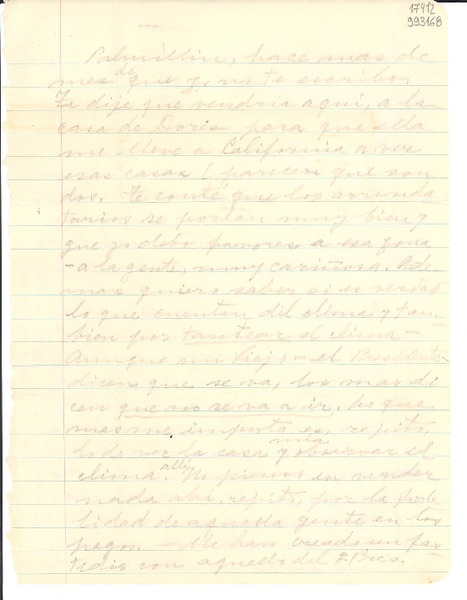 17912
993168
Palmillin, hace mas de
mes de que yo no te escribo,
Te dije que vendría aquí, a la
casa de Doris para que ella
me lleve a California a ver
esas casas (parecen que son
dos. Te conté que los arrenda
tarios se portan muy bien y
que yo debo favores a esa zona
-a la gente, muy cariñosa. Ade
mas quiero saber si es verdad
lo que cuentan del clima y tam
bien por tantear el clima-
Aunque mi viejo - el Presidente
dicen que se va, los mas di
cen que no se va a ir, lo que
mas me importa es, repito,
lo de ver la casa mia y observar el
clima. alli No pienso en vender
nada ahí, repito, por la fide
lidad de aquella gente en los
pagos. - Me han creado un fas
tidio con aquello del P. Pres.